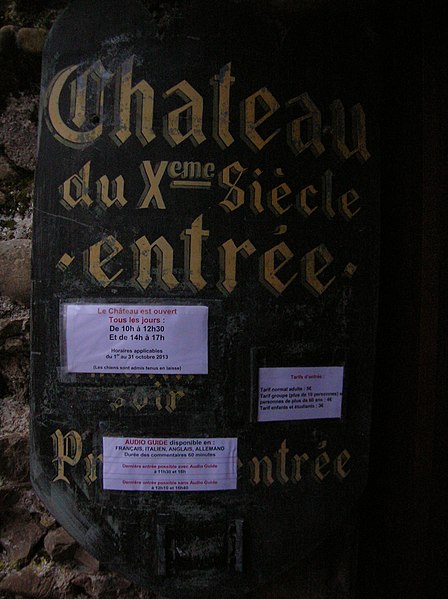 Chateau
du Xeme Siècle
· entrée ·
Le Château est ouvert
Tous les jours :
De 10h à 12h30
Et de 14h à 17h
Horaires applicables
du 1er au 31 octobre 2013
(Les chiens sont admis tenus en laisse)
soir
Tarifs d'entrée :
Tarif normal adulte : 5€
Tarif groupe (plus de 10 personnes)
personnes de plus de 60 ans : 4€
Tarif enfants et étudiants : 3€
AUDIO GUIDE disponible en :
FRANÇAIS, ITALIEN, ANGLAIS, ALLEMAND
Durée des commentaires 60 minutes
Dernière entrée possible avec Audio Guide
à 11h30 et 16h
Dernière entrée possible sans Audio Guide
à 12h10 et 16h40
entrée